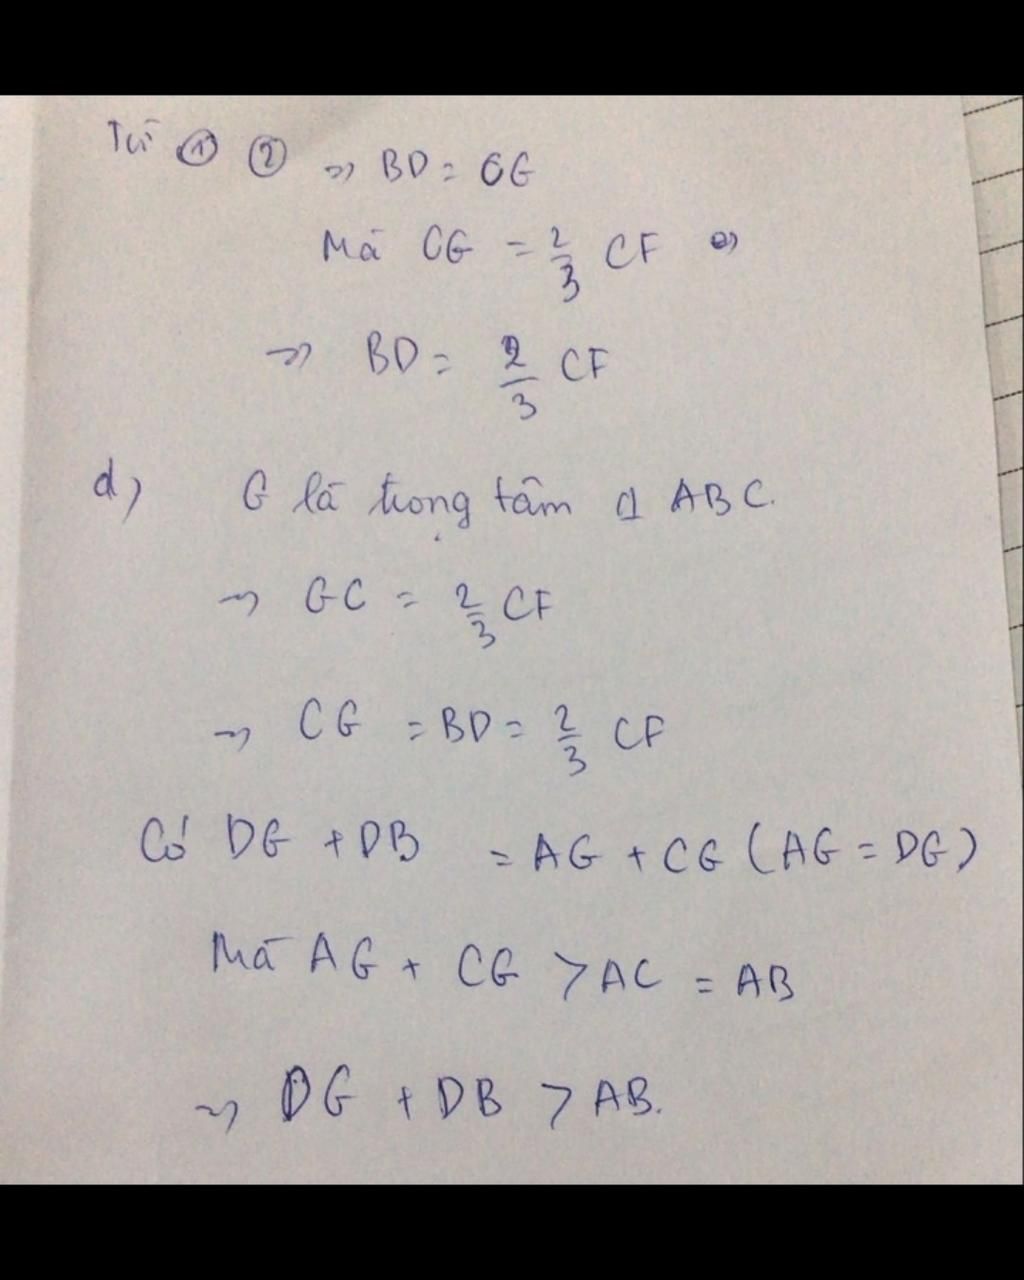 Từ ① ② => BD = CG
Mà CG = 2/3 CF =>
=> BD = 2/3 CF
d) G là trọng tâm Δ ABC.
-> GC = 2/3 CF
-> CG = BD = 2/3 CF
Có DG + DB = AG + CG (AG = DG)
Mà AG + CG > AC = AB
-> DG + DB > AB.